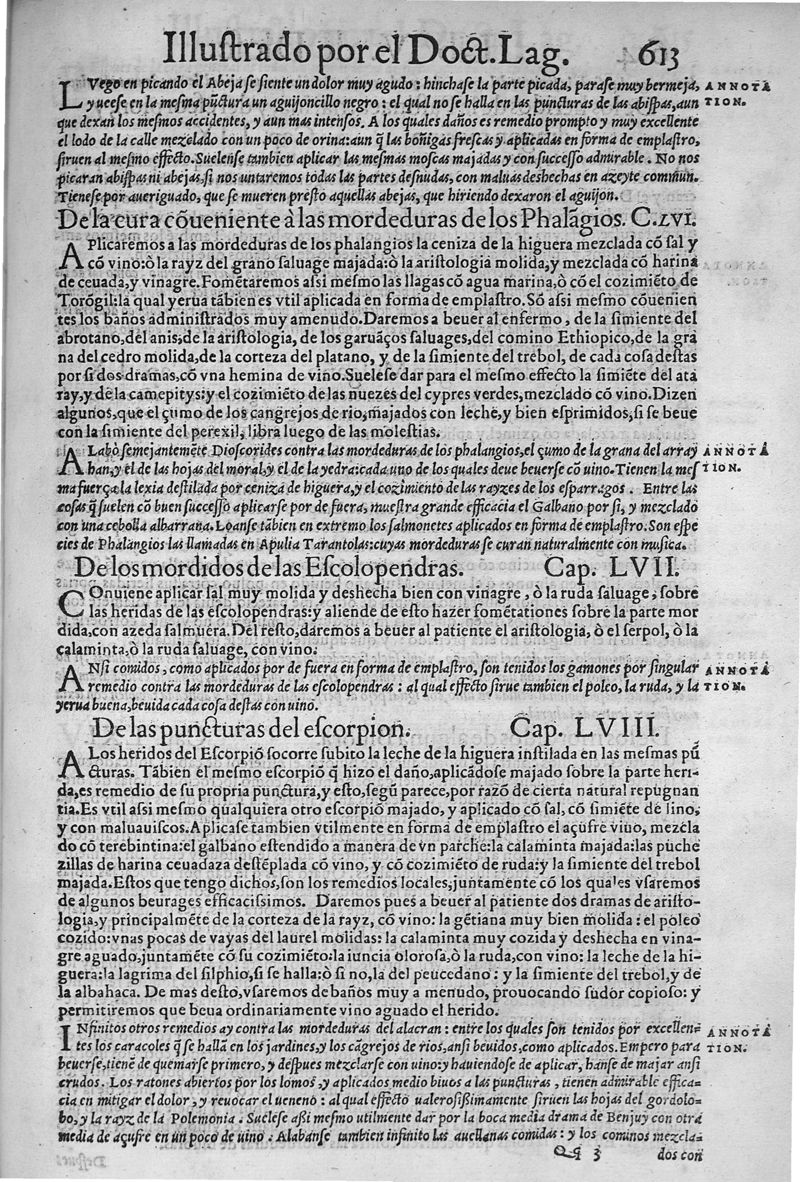 Illustrado por el Doct. Lag. 613
LVego en picando el Abeja se siente un dolor muy agudo: hinchase la parte picada, parase muy bermeja, ANNOTA
y veese en la mesma pũctura un aguijoncillo negro: el qual no se halla en las puncturas de las abispas, aun TION.
que dexan los mesmos accidentes, y aun mas intensos. A los quales daños es remedio prompto y muy excellente
el lodo de la calle mezclado con un poco de orina: aun q̃ las boñigas frescas y aplicadas en forma de emplastro,
siruen al mesmo effecto. Suelense tambien aplicar las mesmas moscas majadas y con successo admirable. No nos
picaran abispas ni abejas, si nos untaremos todas las partes desnudas, con maluas deshechas en azeyte commun.
Tienese por aueriguado, que se mueren presto aquellas abejas, que hiriendo dexaron el aguijon.
De la cura cõueniente à las mordeduras de los Phalãgios. C.LVI.
APlicaremos a las mordeduras de los phalangios la ceniza de la higuera mezclada cõ sal y
cõ vino: ò la rayz del grano saluage majada: ò la aristologia molida, y mezclada cõ harina
de ceuada, y vinagre. Fomẽtaremos assi mesmo las llagas cõ agua marina, ò cõ el cozimiẽto de
Torõgil: la qual yerua tãbien es vtil aplicada en forma de emplastro. Sõ assi mesmo cõuenien
tes los baños administrados muy amenudo. Daremos a beuer al enfermo, de la simiente del
abrotano, del anis, de la aristologia, de los garuãços saluages, del comino Ethiopico, de la gra
na del cedro molida, de la corteza del platano, y de la simiente del trebol, de cada cosa destas
por si dos dramas, cõ vna hemina de vino. Suelese dar para el mesmo effecto la simiẽte del ata
ray, y de la camepitys: y el cozimiẽto de las nuezes del cypres verdes, mezclado cõ vino. Dizen
algunos, que el çumo de los cangrejos de rio, majados con leche, y bien esprimidos, si se beue
con la simiente del perexil, libra luego de las molestias.
ALabò semejantemẽte Dioscorides contra las mordeduras de los phalangios, el çumo de la grana del array ANNOTA
han, y el de las hojas del moral, y el de la yedra: cada uno de los quales deue beuerse cõ uino. Tienen la mes TION.
ma fuerça la lexia destilada por ceniza de higuera, y el cozimiento de las rayzes de los esparragos. Entre las
cosas q̃ suelen cõ buen successo aplicarse por de fuera, muestra grande efficacia el Galbano por si, y mezclado
con una cebolla albarrana. Loanse tãbien en extremo los salmonetes aplicados en forma de emplastro. Son espe
cies de Phalangios las llamadas en Apulia Tarantolas: cuyas mordeduras se curan naturalmente con musica.
De los mordidos de las Escolopendras. Cap. LVII.
COnuiene aplicar sal muy molida y deshecha bien con vinagre, ò la ruda saluage, sobre
las heridas de las escolopendras: y aliende de esto hazer fomẽtationes sobre la parte mor
dida, con azeda salmuera. Del resto, daremos a beuer al patiente el aristologia, ò el serpol, ò la
calaminta, ò la ruda saluage, con vino.
ANsi comidos, como aplicados por de fuera en forma de emplastro, son tenidos los gamones por singular ANNOTA
remedio contra las mordeduras de las escolopendras: al qual effecto sirue tambien el poleo, la ruda, y la TION.
yerua buena, beuida cada cosa destas con uino.
De las puncturas del escorpion. Cap. LVIII.
ALos heridos del Escorpiõ socorre subito la leche de la higuera instilada en las mesmas pũ
cturas. Tãbien el mesmo escorpiõ q̃ hizo el daño, aplicãdose majado sobre la parte heri-
da, es remedio de su propria punctura, y esto, segũ parece, por razõ de cierta natural repugnan
tia. Es vtil assi mesmo qualquiera otro escorpiõ majado, y aplicado cõ sal, cõ simiẽte de lino,
y con maluauiscos. Aplicase tambien vtilmente en forma de emplastro el açufre viuo, mezcla
do cõ terebintina: el galbano estendido a manera de vn parche: la calaminta majada: las puche
zillas de harina ceuadaza destẽplada cõ vino, y cõ cozimiẽto de ruda: y la simiente del trebol
majada. Estos que tengo dichos, son los remedios locales, juntamente cõ los quales vsaremos
de algunos beurages efficacissimos. Daremos pues a beuer al patiente dos dramas de aristo-
logia, y principalmẽte de la corteza de la rayz, cõ vino: la gẽtiana muy bien molida: el poleo
cozido: vnas pocas de vayas del laurel molidas: la calaminta muy cozida y deshecha en vina-
gre aguado, juntamẽte cõ su cozimiẽto: la iuncia olorosa, ò la ruda, con vino: la leche de la hi-
guera: la lagrima del silphio, si se halla: ò si no, la del peucedano: y la simiente del trebol, y de
la albahaca. De mas desto, vsaremos de baños muy a menudo, prouocando sudor copioso: y
permitiremos que beua ordinariamente vino aguado el herido.
INfinitos otros remedios ay contra las mordeduras del alacran: entre los quales son tenidos por excellen= ANNOTA
tes los caracoles q̃ se hallã en los jardines, y los cãgrejos de rios, ansi beuidos, como aplicados. Empero para TION.
beuerse, tienẽ de quemarse primero, y despues mezclarse con uino: y hauiendose de aplicar, hanse de majar ansi
crudos. Los ratones abiertos por los lomos, y aplicados medio biuos a las puncturas, tienen admirable effica=
cia en mitigar el dolor, y reuocar el ueneno: al qual effecto ualerosißimamente siruen las hojas del gordolo=
bo, y la rayz de la Polemonia. Suelese aßi mesmo utilmente dar por la boca media drama de Benjuy con otra
media de açufre en un poco de uino. Alabanse tambien infinito las auellanas comidas: y los cominos mezcla=
Qq 3 dos con